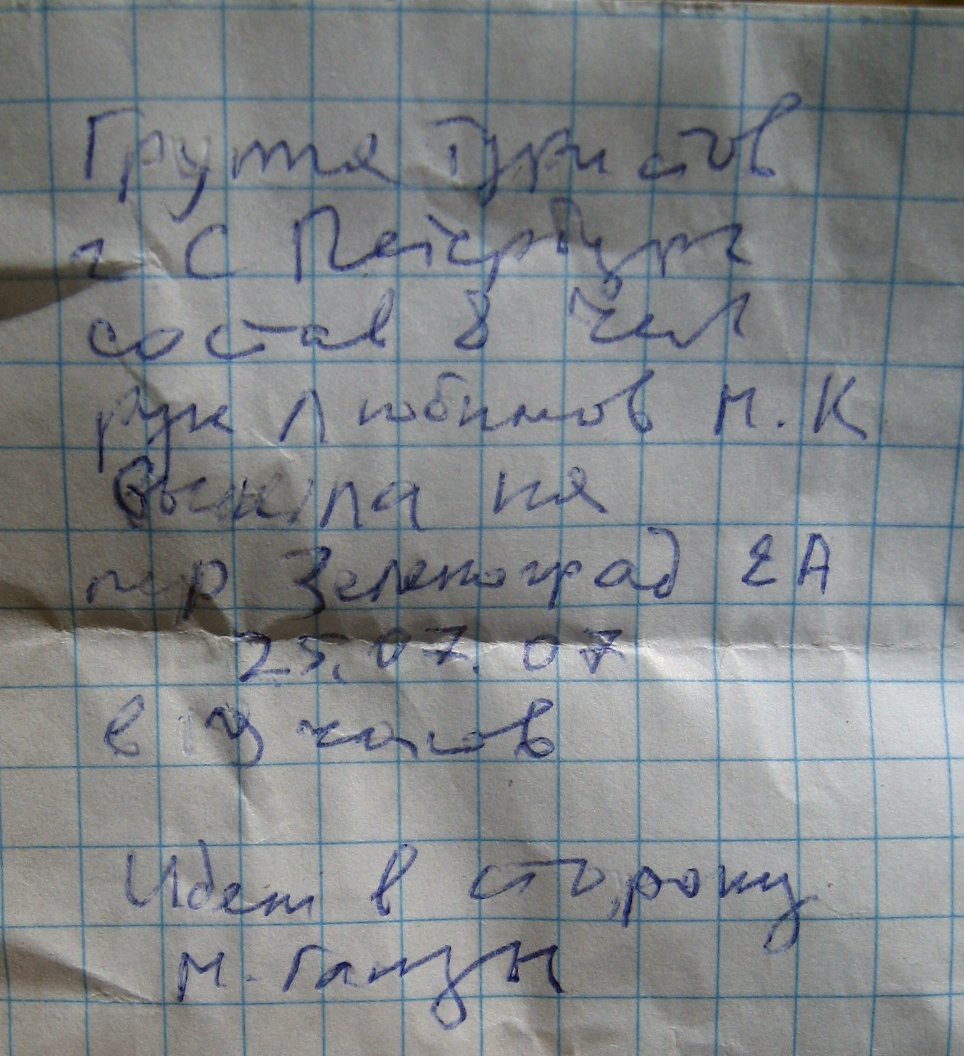 Группа туристов
г С Петербург
состав 8 чел
рук Любимов М.К
вышла на
пер Зеленоград 2А
25.07.07
в часов
Идем в сторону
м.